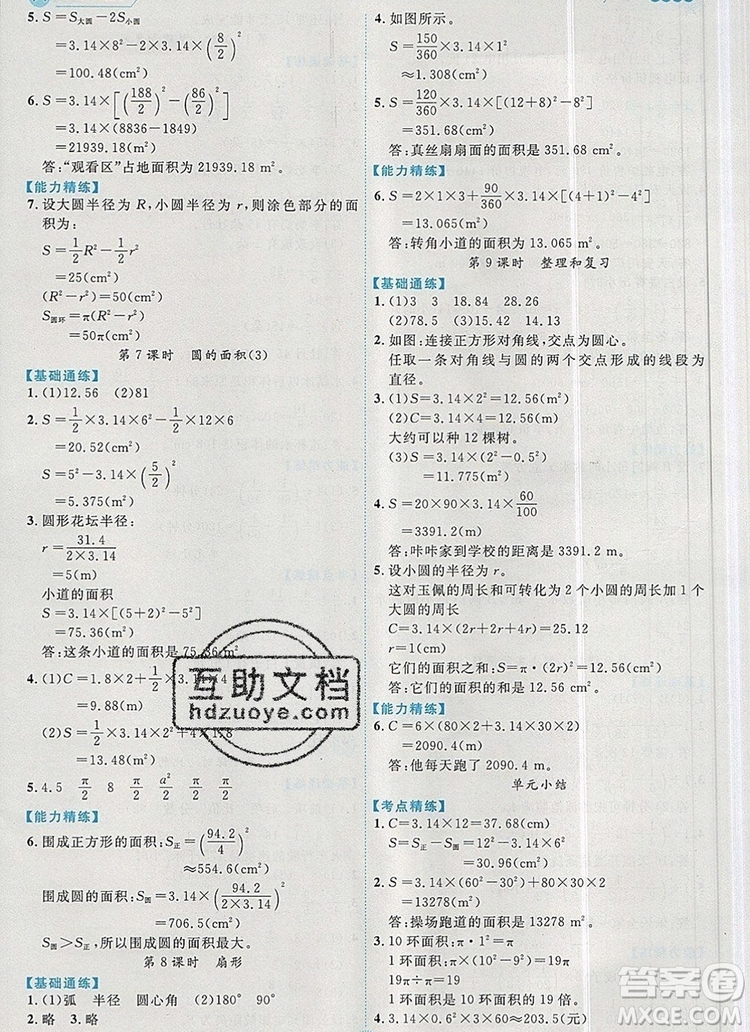 5. S=S大圆-2S小圆
=3.14×8²-2×3.14×(8/2)²
=100.48(cm²)
6. S=3.14×[(188/2)²-(86/2)²]
=3.14×(8836-1849)
=21939.18(m²)
答:“观看区”占地面积为21939.18 m²。
【能力精练】
7. 设大圆半径为R,小圆半径为r,则涂色部分的面
积为:
S=1/2R²-1/2r²
=25(cm²)
(R²-r²)=50(cm²)
S圆环=π(R²-r²)
=50π(cm²)
第7课时 圆的面积(3)
【基础通练】
1. (1)12.56 (2)81
2. S=1/2×3.14×6²-1/2×12×6
=20.52(cm²)
S=5²-3.14×(5/2)²
=5.375(m²)
3. 圆形花坛半径:
r=31.4/(2×3.14)
=5(m)
小道的面积
S=3.14×[(5+2)²-5²]
=75.36(m²)
答:这条小道的面积是75.36 m²
4. (1)C=1.8×2+3.14×
=9.88(m)
(2)S=1/2×3.14×2²+4×1.8
=13.48(m²)
5. 4.5 π/2 8 π/2 a² π/2 2 π/2
【能力精练】
6. 围成正方形的面积:S正=(94.2/4)²
≈554.6(m²)
围成圆的面积:S圆=3.14×(94.2/(2×3.14))²
=706.5(m²)
S圆>S正,所以围成圆的面积最大。
第8课时 扇形
【基础通练】
1. (1)弧 半径 圆心角 (2)180° 90°
2. 略 3. 略
4. 如图所示。
S=150/360×3.14×1²
≈1.308(cm²)
5. S=120/360×3.14×[(12+8)²-8²]
=351.68(cm²)
答:真丝扇扇面的面积是351.68 cm²。
【能力精练】
6. S=2×1×3+90/360×3.14×[(4+1)²-4²]
=13.065(m²)
答:转角小道的面积是13.065 m²。
第9课时 整理和复习
【基础通练】
1. (1)3 3 18.84 28.26
(2)78.5 (3)15.42 14.13
2. 如图:连接正方形对角线,交点为圆心。
任取一条对角线与圆的两个交点形成的线段为
直径。
3. (1)S=3.14×2²=12.56(m²)
(2)C=3.14×4=12.56(m)
大约可以种12棵树。
(3)S=3.14×(2²-0.5²)
=11.775(m²)
4. S=20×90×3.14×60/100
=3391.2(m)
答:咔咔家到学校的距离是3391.2 m。
5. 设小圆的半径为r。
这对玉佩的周长和可转化为2个小圆的周长加1个
大圆的周长
C=3.14×(2r+4r)=25.12
r=1(cm)
它们的面积和是3.14×2²=12.56(cm²)
答:它们的面积和是12.56 cm²。
【能力精练】
6. C=6×(80×2+3.14×30×2)
=2090.4(m)
答:他每天跑了2090.4 m。
单元小结
【考点精练】
1. C=3.14×12=37.68(m)
S=S正-S圆=12×12-3.14×6²
=30.96(m²)
2. S=3.14×(60²-30²)+2×30×80
=13278(m²)
答:操场跑道的面积是13278 m²。
3. 10环面积:π·1²=π
1环面积:π·(10²-9²)=19π
19π÷π=19
1环的面积是10环面积的19倍。
4. 3.14×10²÷2×200÷ ≈203.5(元)
互助文档
hdzuoye.com
答案圈
MXQE.COM